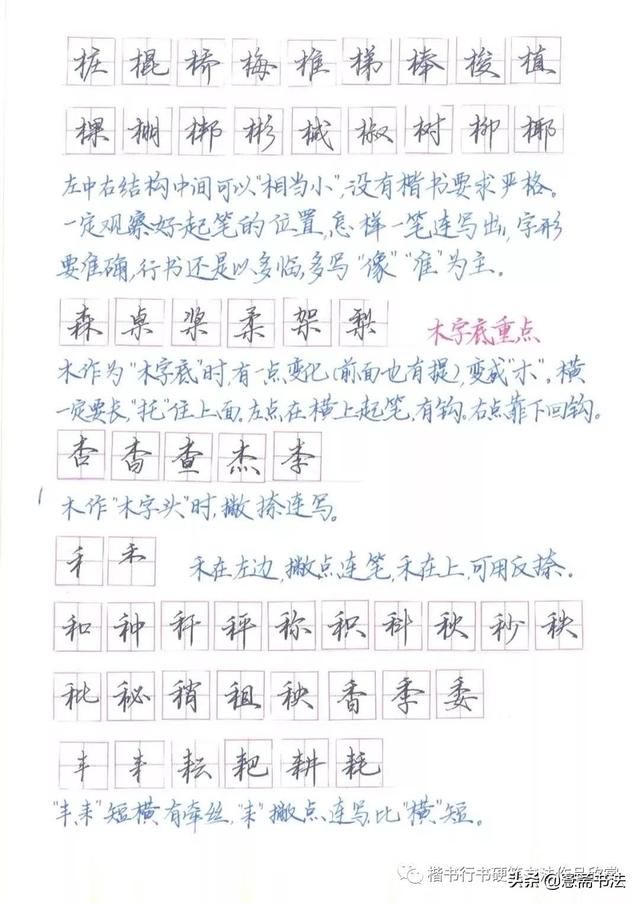 桩 棍 桥 梅 椎 梯 棒 梭 植
棵 棚 梆 彬 械 椒 树 柳 椰
左中右结构中间可以"相当小",没有楷书要求严格。
一定观察好起笔的位置,怎样一笔连写出,字形
要准确,行书还是以多临,多写"像""准"为主。
森 桌 桨 柔 架 梨 木字底重点
木作为"木字底"时,有一点变化(前面也有提),变成"朩"。横
一定要长,"托"住上面。左点在横上起笔,有钩。右点靠下回钩。
杏 杳 查 杰 李
木作"木字头"时,撇捺连写。
禾 禾 禾在左边,撇点连笔,禾在上,可用反捺。
和 种 秆 秤 称 积 科 秋 秒 秩
秕 秘 稍 租 秧 香 季 委
丰 耒 耘 耙 耕 耗
"丰、耒"短横有牵丝,"耒"撇点连写,比"横"短。
楷书行书硬笔书法作品欣赏
头条@慧斋书法